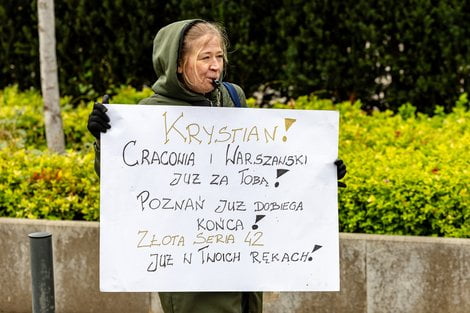 KRYSTIAN!
CRACOVIA I WARSZAWSKI
JUŻ ZA TOBĄ!
POZNAŃ JUŻ DOBIEGA
KOŃCA!
ZŁOTA SERIA 42
JUŻ W TWOICH RĘKACH!